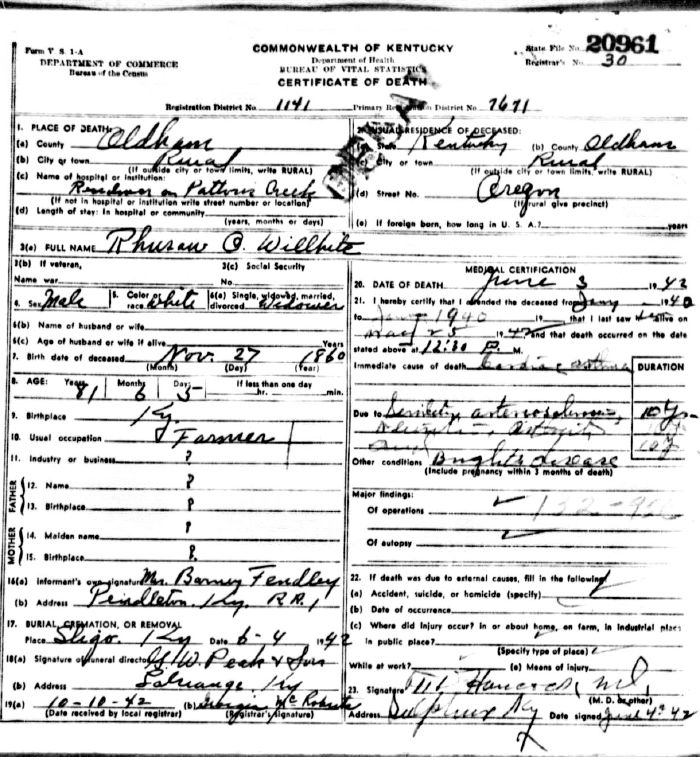 Form V. S. 1-A
DEPARTMENT OF COMMERCE
Bureau of the Census
COMMONWEALTH OF KENTUCKY
Department of Health
BUREAU OF VITAL STATISTICS
CERTIFICATE OF DEATH
State File No. 20961
Registrar's No. 30
Registration District No. 1141 Primary Registration District No. 7671
1. PLACE OF DEATH:
(a) County Oldham
(b) City or town Rural
(If outside city or town limits, write RURAL)
(c) Name of hospital or institution:
Residence on Pattons Creek
(If not in hospital or institution write street number or location)
(d) Length of stay: In hospital or community
(years, months or days)
2. USUAL RESIDENCE OF DECEASED:
(a) State Kentucky (b) County Oldham
(c) City or town Rural
(If outside city or town limits, write RURAL)
(d) Street No. Oregon
(If rural give precinct)
(e) If foreign born, how long in U. S. A.? years
3(a) FULL NAME O. Willhite
3(b) If veteran, 3(c) Social Security
Name war No.
4. Sex Male 5. Color or race White 6(a) Single, widowed, married, divorced Widower
6(b) Name of husband or wife
6(c) Age of husband or wife if alive Years
7. Birth date of deceased Nov. 27 1860
(Month) (Day) (Year)
8. AGE: Years 81 Months 6 Days 5 If less than one day hr. min.
9. Birthplace Ky.
10. Usual occupation Farmer
11. Industry or business ?
FATHER
12. Name ?
13. Birthplace ?
MOTHER
14. Maiden name ?
15. Birthplace ?
16(a) Informent's own signature Mrs. Barney Fendley
(b) Address Pendleton, Ky. R.R. 1
17. BURIAL, CREMATION, OR REMOVAL
Place Sligo Ky Date 6-4 1942
18(a) Signature of funeral director W. Peak & Sons
(b) Address LaGrange Ky
19(a) 10-10-42 (b) Georgia McRoberts
(Date received by local registrar) (Registrar's signature)
MEDICAL CERTIFICATION
20. DATE OF DEATH June 3 1942
21. I hereby certify that I attended the deceased from Jany 1940
to 1940 19 that I last saw alive on
May 25 1942 and that death occurred on the date
stated above at 12:30 P. M.
Immediate cause of death Cardiac asthma
DURATION
Due to Senility, arteriosclerosis, 10 Yrs
10 Y
Other conditions Bright's disease
(Include pregnancy within 3 months of death)
Major findings:
Of operations
Of autopsy
22. If death was due to external causes, fill in the following
(a) Accident, suicide, or homicide (specify)
(b) Date of occurrence
(c) Where did injury occur? in or about home, on farm, in industrial place
in public place?
(Specify type of place)
While at work? (e) Means of injury
23. Signature Hancock, M.D.
(M. D. or other)
Address Sulphur Ky Date signed June 4th 42